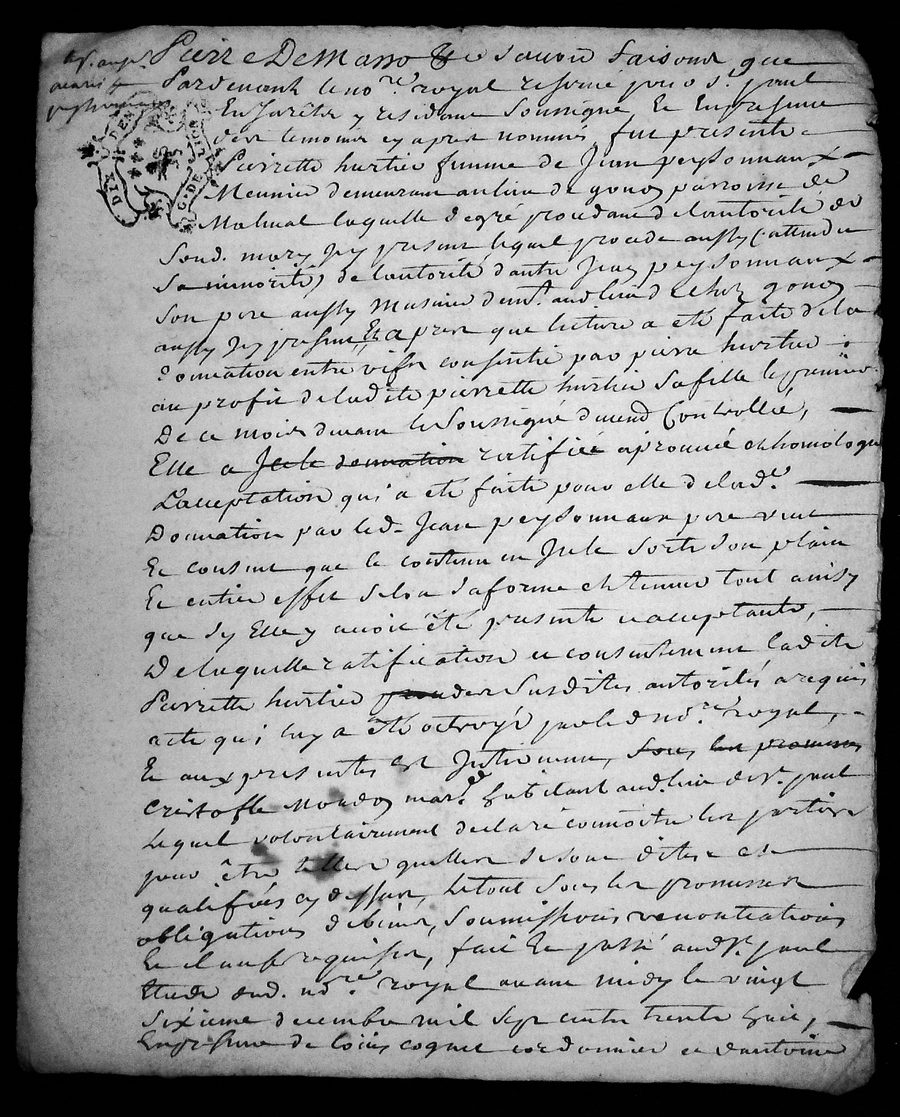 Pierre Demasso &c savoir faisons que
Pardevant le no.re royal reservé pour s.t paul
En Jarêts y residant soussigné Et En presence
des temoins cy apres nommés fut presente
Pierrette hurtier femme de Jean peyssonnaux
Meunier demeurant au lieu de gonon parroisse de
Malval laquelle de gré procedant de l'autorité de
Sond. mary Icy present, lequel procede aussy (attendu
Sa minorité) de l'autorité d'autre Jean peyssonnaux
Son pere aussy Musnier dem.t aud. lieu de chez gonon
aussy Icy present, Et apres que lecture a eté faite de la
Donnation entre vifs consentie par pierre hurtier
au profit de ladite pierrette hurtier sa fille le premier
De ce mois devant le soussigné duëment Controllée,
Elle a Icelle donnation ratifiée aprouvé et homologué
L'acceptation qui a eté faite pour elle de lad.e
Donnation par led. Jean peyssonnaux pere veut
Et consent que le contenu en Icelle sorte son plain
Et entier effet selon sa forme et teneur tout ainsy
que sy Elle y avoit êté presente et acceptante,
De laquelle ratification et consentement ladite
Pierrette hurtier susdites autorités a requis
acte qui luy a eté octroyé par led. no.re royal,
Et aux presentes est Intervenu, sous les promesses
Cristofle mar.d habitant aud. lieu de s.t paul
Lequel volontairement declaré connoitre les parties
pour être telles quelles se sont dites et
qualifiées cy dessus, Le tout sous les promesses
obligations de biens, soumissions renontiations
Et clauses requises, fait Et passé aud. s.t paul
Etude dud. no.re royal avant midy le vingt
Sixieme decembre mil sept cents trente huit,
En presence de Loüis coignet cordonnier et d'antoine
DIX DEN
G. DE LION